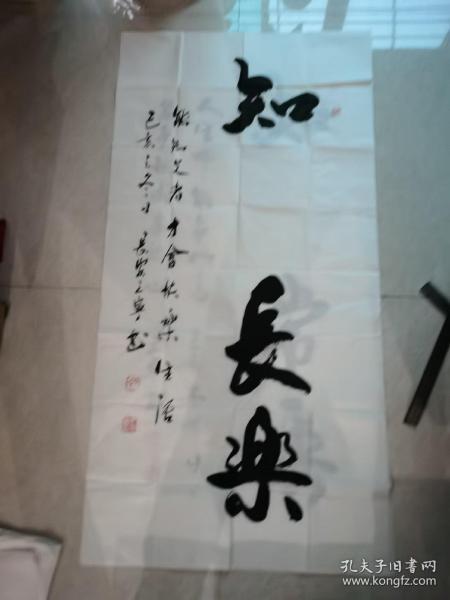 知長樂
能知足者才會快樂生活
己亥之冬日長安書
孔夫子旧书网
www.kongfz.com